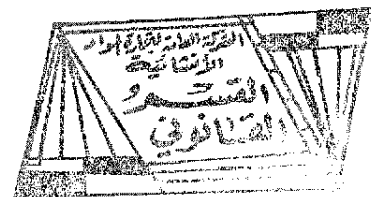 الشركة العامة لتجارة المواد
الأنشائية
القسم
القانوني